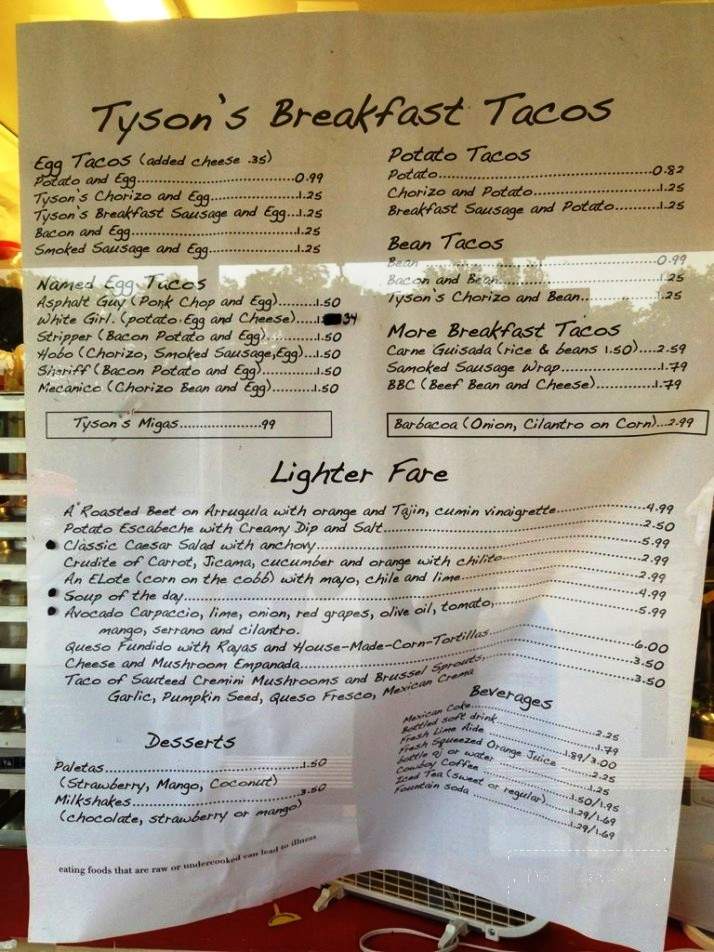 Tyson's Breakfast Tacos
Egg Tacos (added cheese .35)
Potato and Egg..........0.99
Tyson's Chorizo and Egg..........1.25
Tyson's Breakfast Sausage and Egg...1.25
Bacon and Egg..........1.25
Smoked Sausage and Egg..........1.25
Named Egg Tacos
Asphalt Guy (Pork Chop and Egg)........1.50
White Girl. (potato Egg and Cheese).....1. 34
Stripper (Bacon Potato and Egg)..........1.50
Hobo (Chorizo, Smoked Sausage,Egg)...1.50
Sheriff (Bacon Potato and Egg)..........1.50
Mecanico (Chorizo Bean and Egg).........1.50
Tyson's Migas....................99
Potato Tacos
Potato..........0.82
Chorizo and Potato..........1.25
Breakfast Sausage and Potato..........1.25
Bean Tacos
Bean..........0.99
Bacon and Bean..........1.25
Tyson's Chorizo and Bean..........1.25
More Breakfast Tacos
Carne Guisada (rice & beans 1.50)....2.59
Samoked Sausage Wrap..........1.79
BBC (Beef Bean and Cheese)..........1.79
Barbacoa (Onion, Cilantro on Corn)...2.99
Lighter Fare
A Roasted Beet on Arrugula with orange and Tajin, cumin vinaigrette..........4.99
Potato Escabeche with Creamy Dip and Salt..........2.50
Classic Caesar Salad with anchovy..........5.99
Crudite of Carrot, Jicama, cucumber and orange with chilito..........2.99
An ELote (corn on the cobb) with mayo, chile and lime..........2.99
Soup of the day..........4.99
Avocado Carpaccio, lime, onion, red grapes, olive oil, tomato,..........5.99
mango, serrano and cilantro.
Queso Fundido with Rayas and House-Made-Corn-Tortillas..........6.00
Cheese and Mushroom Empanada..........3.50
Taco of Sauteed Cremini Mushrooms and Brussel Sprouts,..........3.50
Garlic, Pumpkin Seed, Queso Fresco, Mexican Crema
Desserts
Paletas..........1.50
(Strawberry, Mango, Coconut)
Milkshakes..........3.50
(chocolate, strawberry or mango)
Beverages
Mexican Coke..........2.25
Bottled soft drink..........1.79
Fresh Lime Aide..........1.89/3.00
Fresh Squeezed Orange Juice..........2.25
bottle oj or water..........1.25
Cowboy Coffee..........1.50/1.95
Iced Tea (sweet or regular)..........1.29/1.69
Fountain soda..........1.29/1.69
eating foods that are raw or undercooked can lead to illness